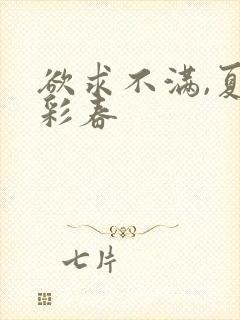 欲求不满,夏
彩春
七片